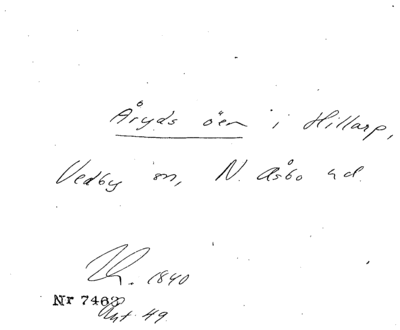 Åryds öen i Hillarp,
Vedby sn, N. Åsbo hd.
1840
Nr 7463
Akt 49.